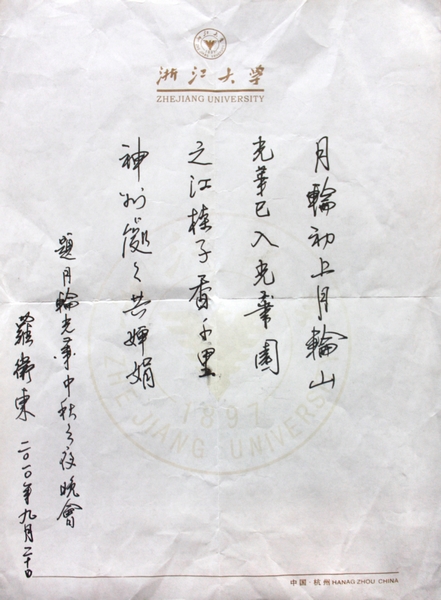 浙江大学
ZHEJIANG UNIVERSITY
月輪初上月輪山
光華已入光華園
之江桂子香千里
神州處々共嬋娟
題月輪光華中秋之夜晚會
羅衛東 二〇一〇年九月二十日
1897
ZHEJIANG UNIVERSITY
中国·杭州 HANAG-ZHOU CHINA